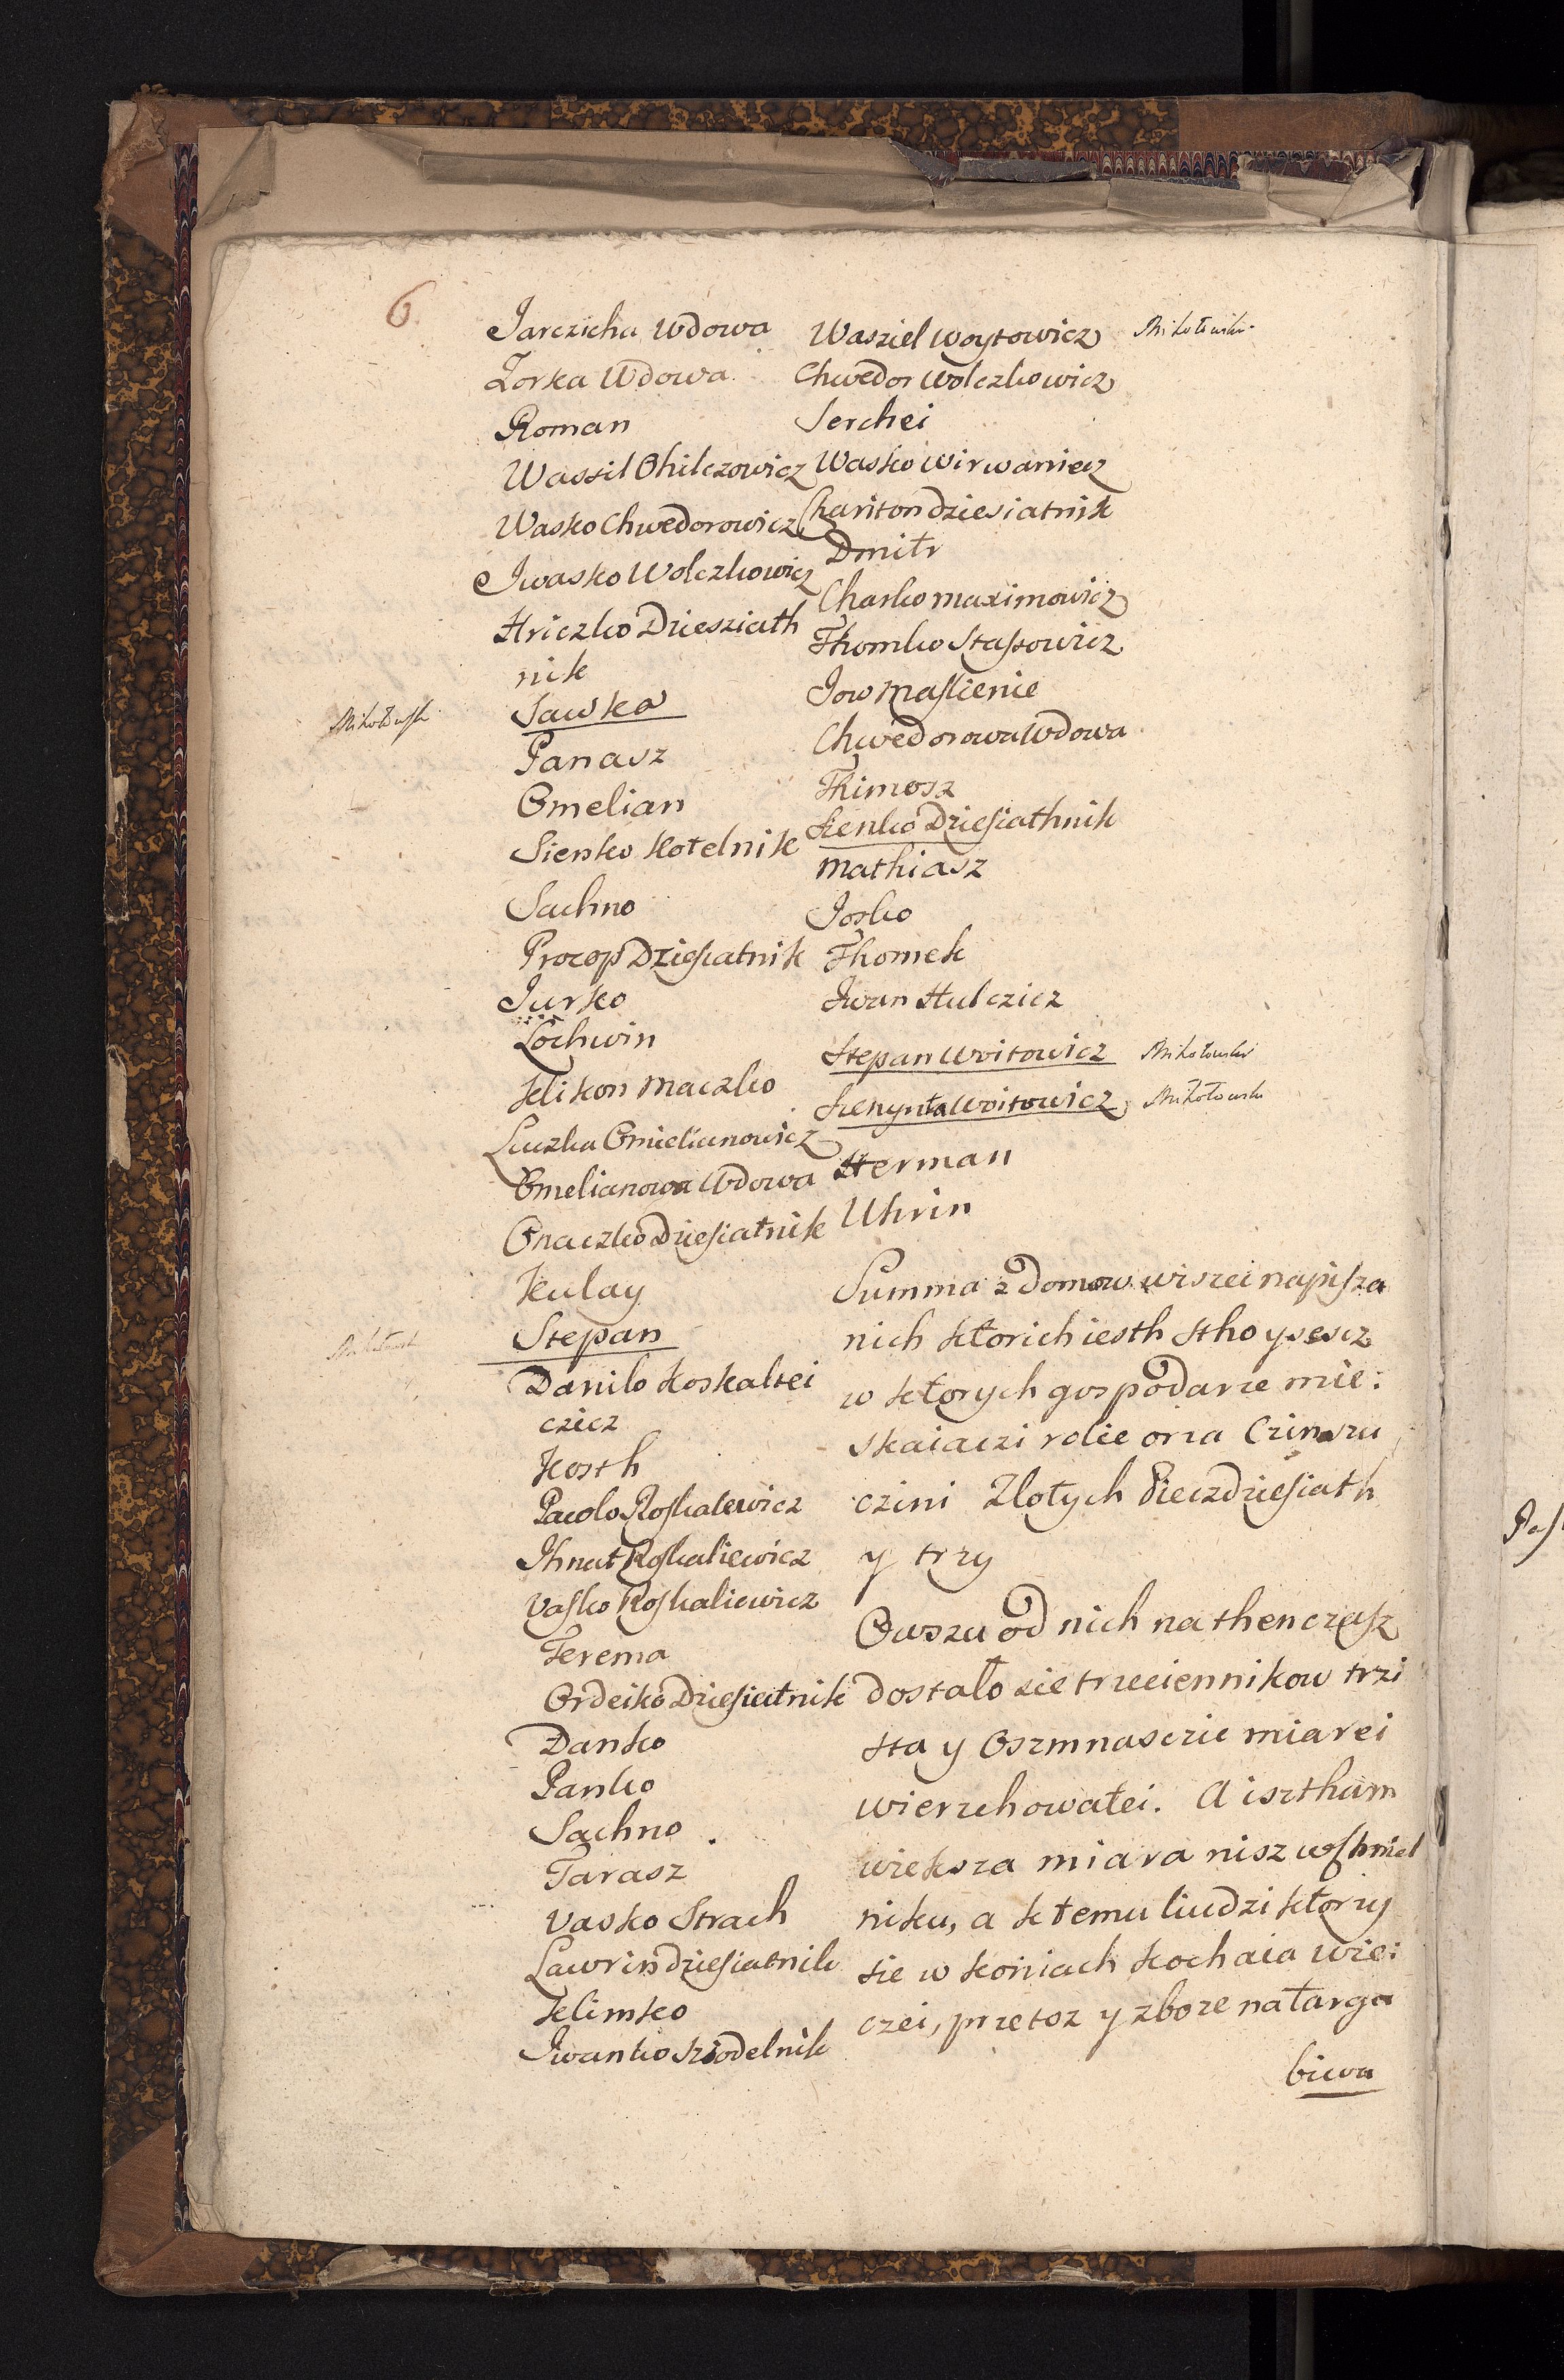 6.
Jarczicha Wdowa
Zorka Wdowa
Roman
Wassil Chilczowicz
Wasko Chwedorowicz
Iwasko Wolczkowicz
Hriczko Dziesziath
nik
Sawka
Panasz
Omelian
Sienko Kotelnik
Sachno
Procop Dziesiatnik
Jurko
Lochwin
Klikon Maczko
Luczka Omielianowicz
Omelianowa Wdowa
Onaczko Dziesiatnik
Kulay
Stepan
Danilo Koskalei
czicz
Kosth
Pawlo Roskalewicz
Ihnat Roskaliewicz
Vasko Roskaliewicz
Jerema
Ordeiko Dziesiatnik
Danko
Panko
Sachno
Tarasz
Vasko Strach
Lawrin dziesiatnik
Klimko
Iwanko Siodelnik
Wasziel Woytowicz Mikołowski
Chwedor Wolczkowicz
Serchei
Wasko Wirwaniecz
Chariton dziesiatnik
Dmitr
Charko Maximowicz
Thomko Stassowicz
Jow Maslienie
Chwedorowa Wdowa
Thimosz
Senko Dziesiathnik
Mathiasz
Josko
Thomek
Iwan Hulczicz
Stepan Woitowicz Mikołowski
Woitowicz Mikołowski
Herman
Uhrin
Summa z domow wiszei napisza
nich ktorich iesth stho y sescz
w ktorych gospodarze mie:
skaiaczi rolie orza Czinszu
czini Zlotych Pieczdziesiath
y trzy
Owszu od nich na thenczasz
dostało sie trzeciennikow trzi
sta y Oszmnasczie miarei
wierzchowatei. A isz tham
wieksza miara nisz w Chmiel
niku, a k temu liudzi ktorzy
sie w koniach kochaia wie:
czei, przetoz y zboze na targa
biwa